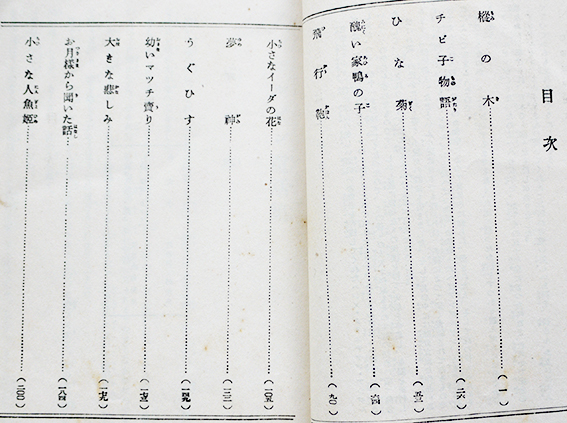 目次
樅の木 (一)
チビ子物語 (二六)
ひな菊 (五三)
醜い家鴨の子 (六四)
飛行鞄 (九〇)
小さなイーダの花 (一〇五)
夢神 (一二二)
うぐひす (一四九)
幼いマツチ賣り (一七三)
大きな悲しみ (一七九)
お月樣から聞いた話 (一八四)
小さな人魚姬 (二〇〇)